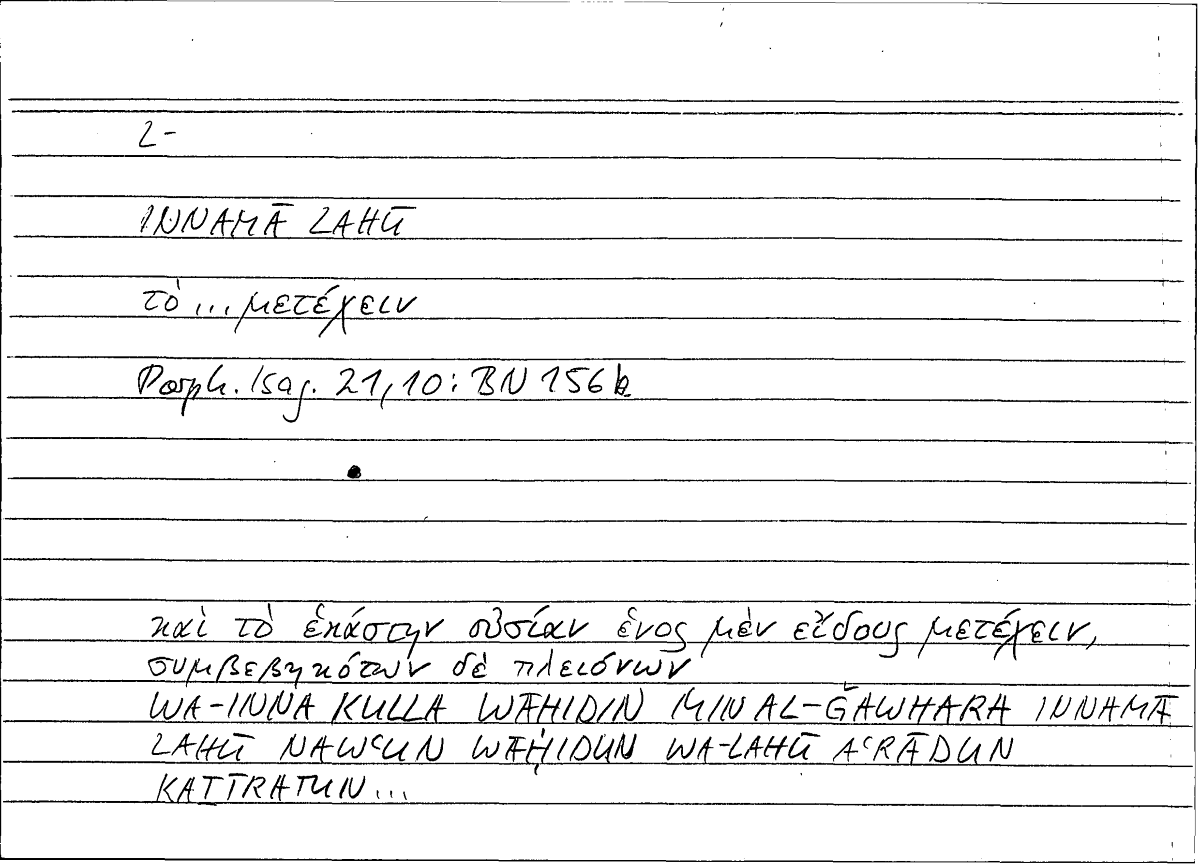 2-
INNAMĀ LAHŪ
τὸ ... μετέχειν
Porph. Isag. 21,10: BN 156b
καὶ τὸ ἑκάστην οὐσίαν ἑνὸς μὲν εἴδους μετέχειν,
συμβεβηκότων δὲ πλειόνων
WA-INNA KULLA WĀHIDIN MIN AL-ǦAWHARA INNAMĀ
LAHŪ NAWʿUN WĀḤIDUN WA-LAHŪ AʿRĀDUN
KATĪRATUN...